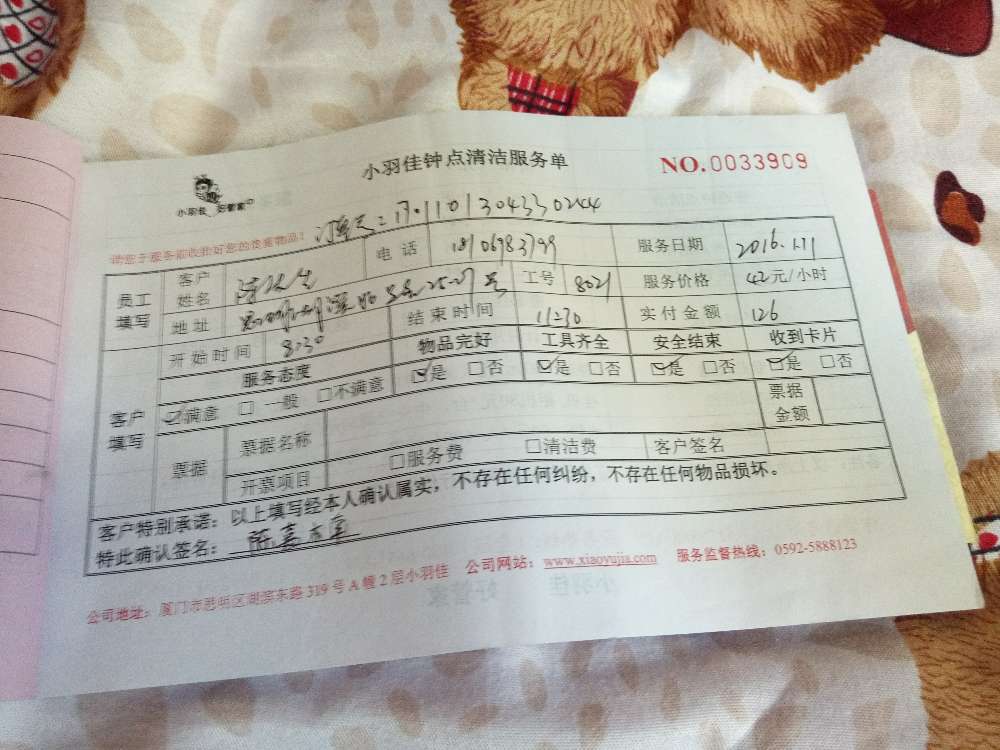 小羽佳钟点清洁服务单
NO.0033909
小羽佳 好管家
请您于服务前收拾好您的贵重物品!
员工填写 客户姓名 电话 服务日期 2016.1.11
地址 工号 8021 服务价格 42元/小时
开始时间 8:30 结束时间 11:30 实付金额 126
客户填写 服务态度 物品完好 工具齐全 安全结束 收到卡片
☑满意 □一般 □不满意 ☑是 □否 ☑是 □否 ☑是 □否 ☑是 □否
票据 票据名称 票据金额
开票项目 □服务费 □清洁费 客户签名
客户特别承诺:以上填写经本人确认属实,不存在任何纠纷,不存在任何物品损坏。
特此确认签名:
公司地址:厦门市思明区湖滨东路319号A幢2层小羽佳 公司网站:www.xiaoyujia.com 服务监督热线:0592-5888123